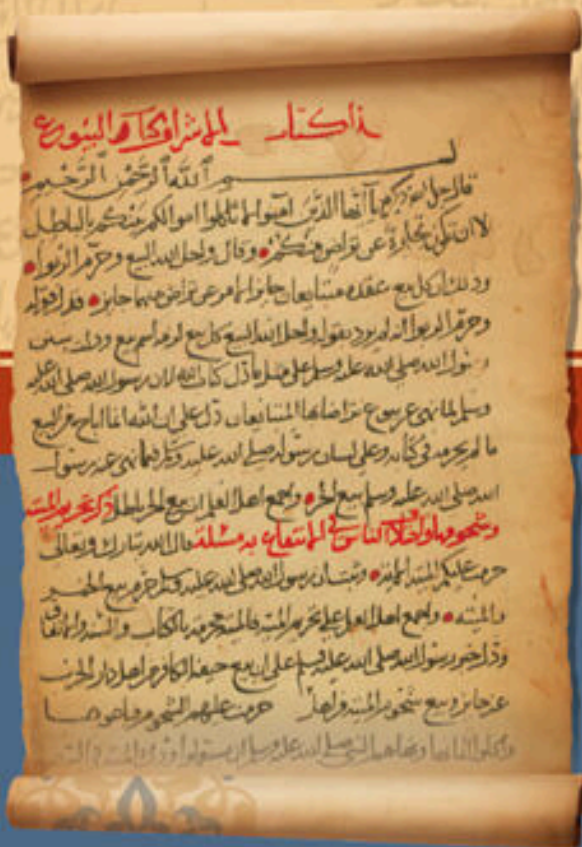 ذا كتاب الاشراف كتاب البيوع
بسم الله الرحمن الرحيم
قال جل ذكره يا أيها الذين امنوا لا تاكلوا اموالكم بينكم بالباطل
الا ان تكون تجارة عن تراض منكم وقال واحل الله البيع وحرم الربوا
وذلك ان كل بيع عقده متبايعان جايزا الامر عن تراض منهما جايز
وحرم الربوا انه لم يرد بقوله واحل الله البيع كل بيع لزمه اسم بيع
رسول الله صلى الله عليه وسلم على مثل ما دل كتاب الله لان رسول الله صلى الله عليه
وسلم لما نهى عن بيوع تراضا بها المتبايعان دل على ان الله انما اباح من البيع
ما لم يحرمه في كتابه وعلى لسان رسوله صلى الله عليه وسلم فيما نهى عنه رسول
الله صلى الله عليه وسلم بيع الحر واجمع اهل العلم ان بيع الحر باطل ذكر تحريم الميتة
وشحومها واختلاف الناس في الانتفاع به مسئلة قال الله تبارك وتعالى
حرمت عليكم الميتة الاية وثبت ان رسول الله صلى الله عليه وسلم حرم بيع الخمر
والميتة واجمع اهل العلم على تحريم الميتة فالميتة محرمة بالكتاب والسنة والاتفاق
رسول الله صلى الله عليه وسلم على ان بيع جيفة الكافر من اهل دار الحرب
غير جايز وبيع شحوم الميتة حرمت عليهم الشحوم فباعوها
واكلوا اثمانها